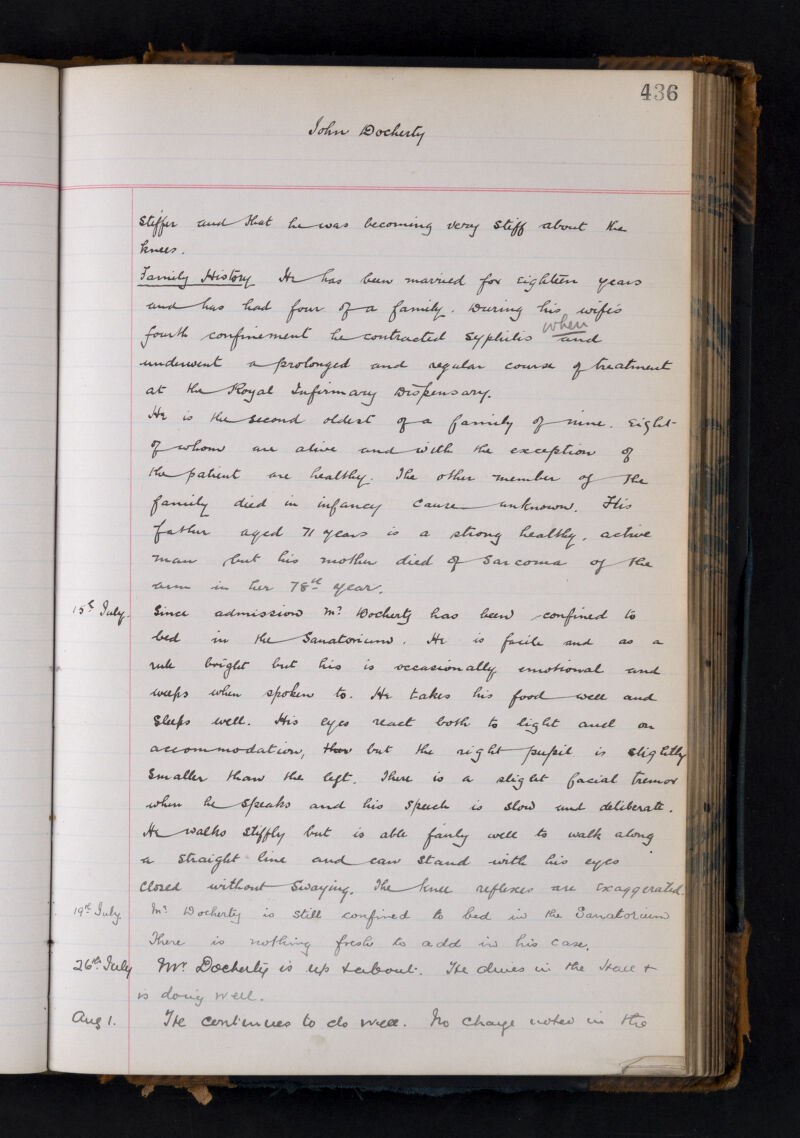 436
John Docherty
stiffer and that he was becoming very stiff about the
knees.
Family History He has been married for eighteen years
and has had four of a family. During his wife's
fourth confinement he contracted Syphilis and when
underwent a prolonged and regular course of treatment
at the Royal Infirmary Dispensary.
He is the second oldest of a family of nine. Eight
of whom are alive and with the exception of
the patient are healthy. The other member of the
family died in infancy cause unknown. His
father aged 71 years is a strong healthy, active
man but his mother died of Sarcoma of the
arm in her 78th year.
15th July. Since admission Mr Docherty has been confined to
bed in the Sanatorium. He is facile and as a
rule bright but his is occasionally emotional and
weeps when spoken to. He takes his food well and
sleeps well. His eyes react both to light and on
accommodation, but the right pupil is slightly
smaller than the left. There is a slight facial tremor
when he speaks and his speech is slow and deliberate.
He walks stiffly but is able fairly well to walk along
a straight line and can stand with his eyes
closed without swaying. The knee reflexes are exaggerated.
19th July Mr Docherty is still confined to bed in the Sanatorium
There is nothing fresh to add in his case.
26th July Mr Docherty is up & about. He dines in the Hall &
is doing well.
Aug 1. He continues to do well. No change noted in the